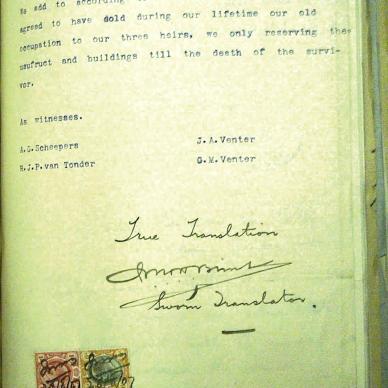 We add to according
agreed to have dold during our lifetime our old
occupation to our three heirs, we only reserving the
usufruct and buildings till the death of the survi-
vor.
As witnesses.
A.G.Scheepers J.A.Venter
H.J.P.van Tonder G.M.Venter
True Translation
Sworn Translator.